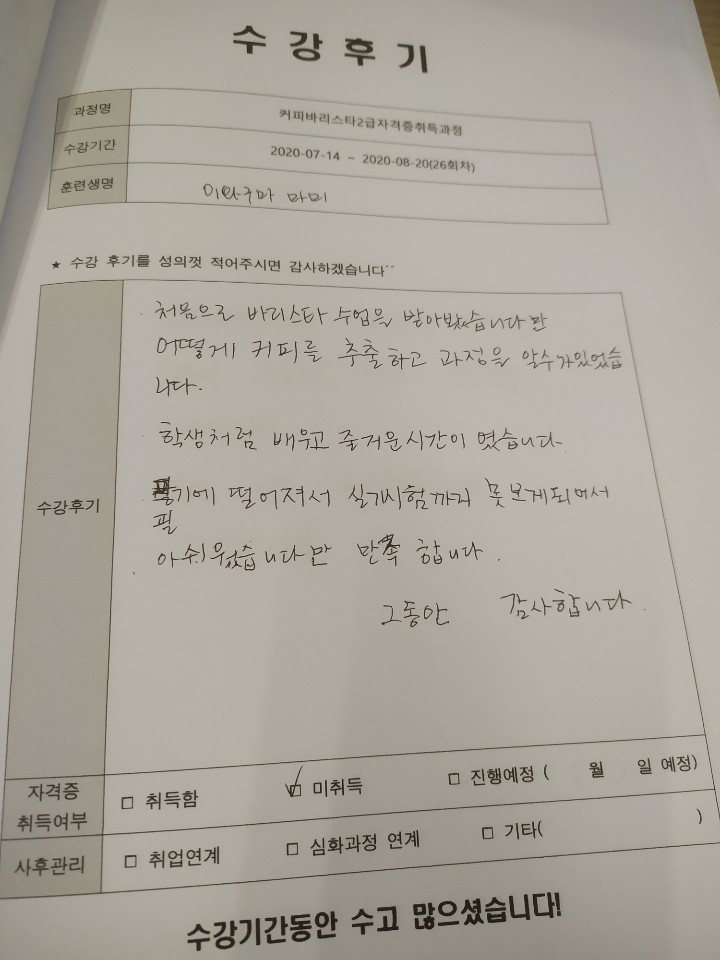 수강후기
과정명 커피바리스타2급자격증취득과정
수강기간 2020-07-14 ~ 2020-08-20(26회차)
훈련생명 이와쿠마 마미
★ 수강 후기를 성의껏 적어주시면 감사하겠습니다^^
수강후기
처음으로 바리스타 수업을 받아봤습니다만
어떻게 커피를 추출하고 과정을 알수가있었습
니다.
학생처럼 배우고 즐거운시간이 였습니다.
기에 떨어져서 실기시험까지 못보게되어서
필
아쉬웠습니다만 만족 합니다.
그동안 감사합니다.
자격증
취득여부
□ 취득함 ☑ 미취득 □ 진행예정 ( 월 일 예정)
사후관리 □ 취업연계 □ 심화과정 연계 □ 기타( )
수강기간동안 수고 많으셨습니다!